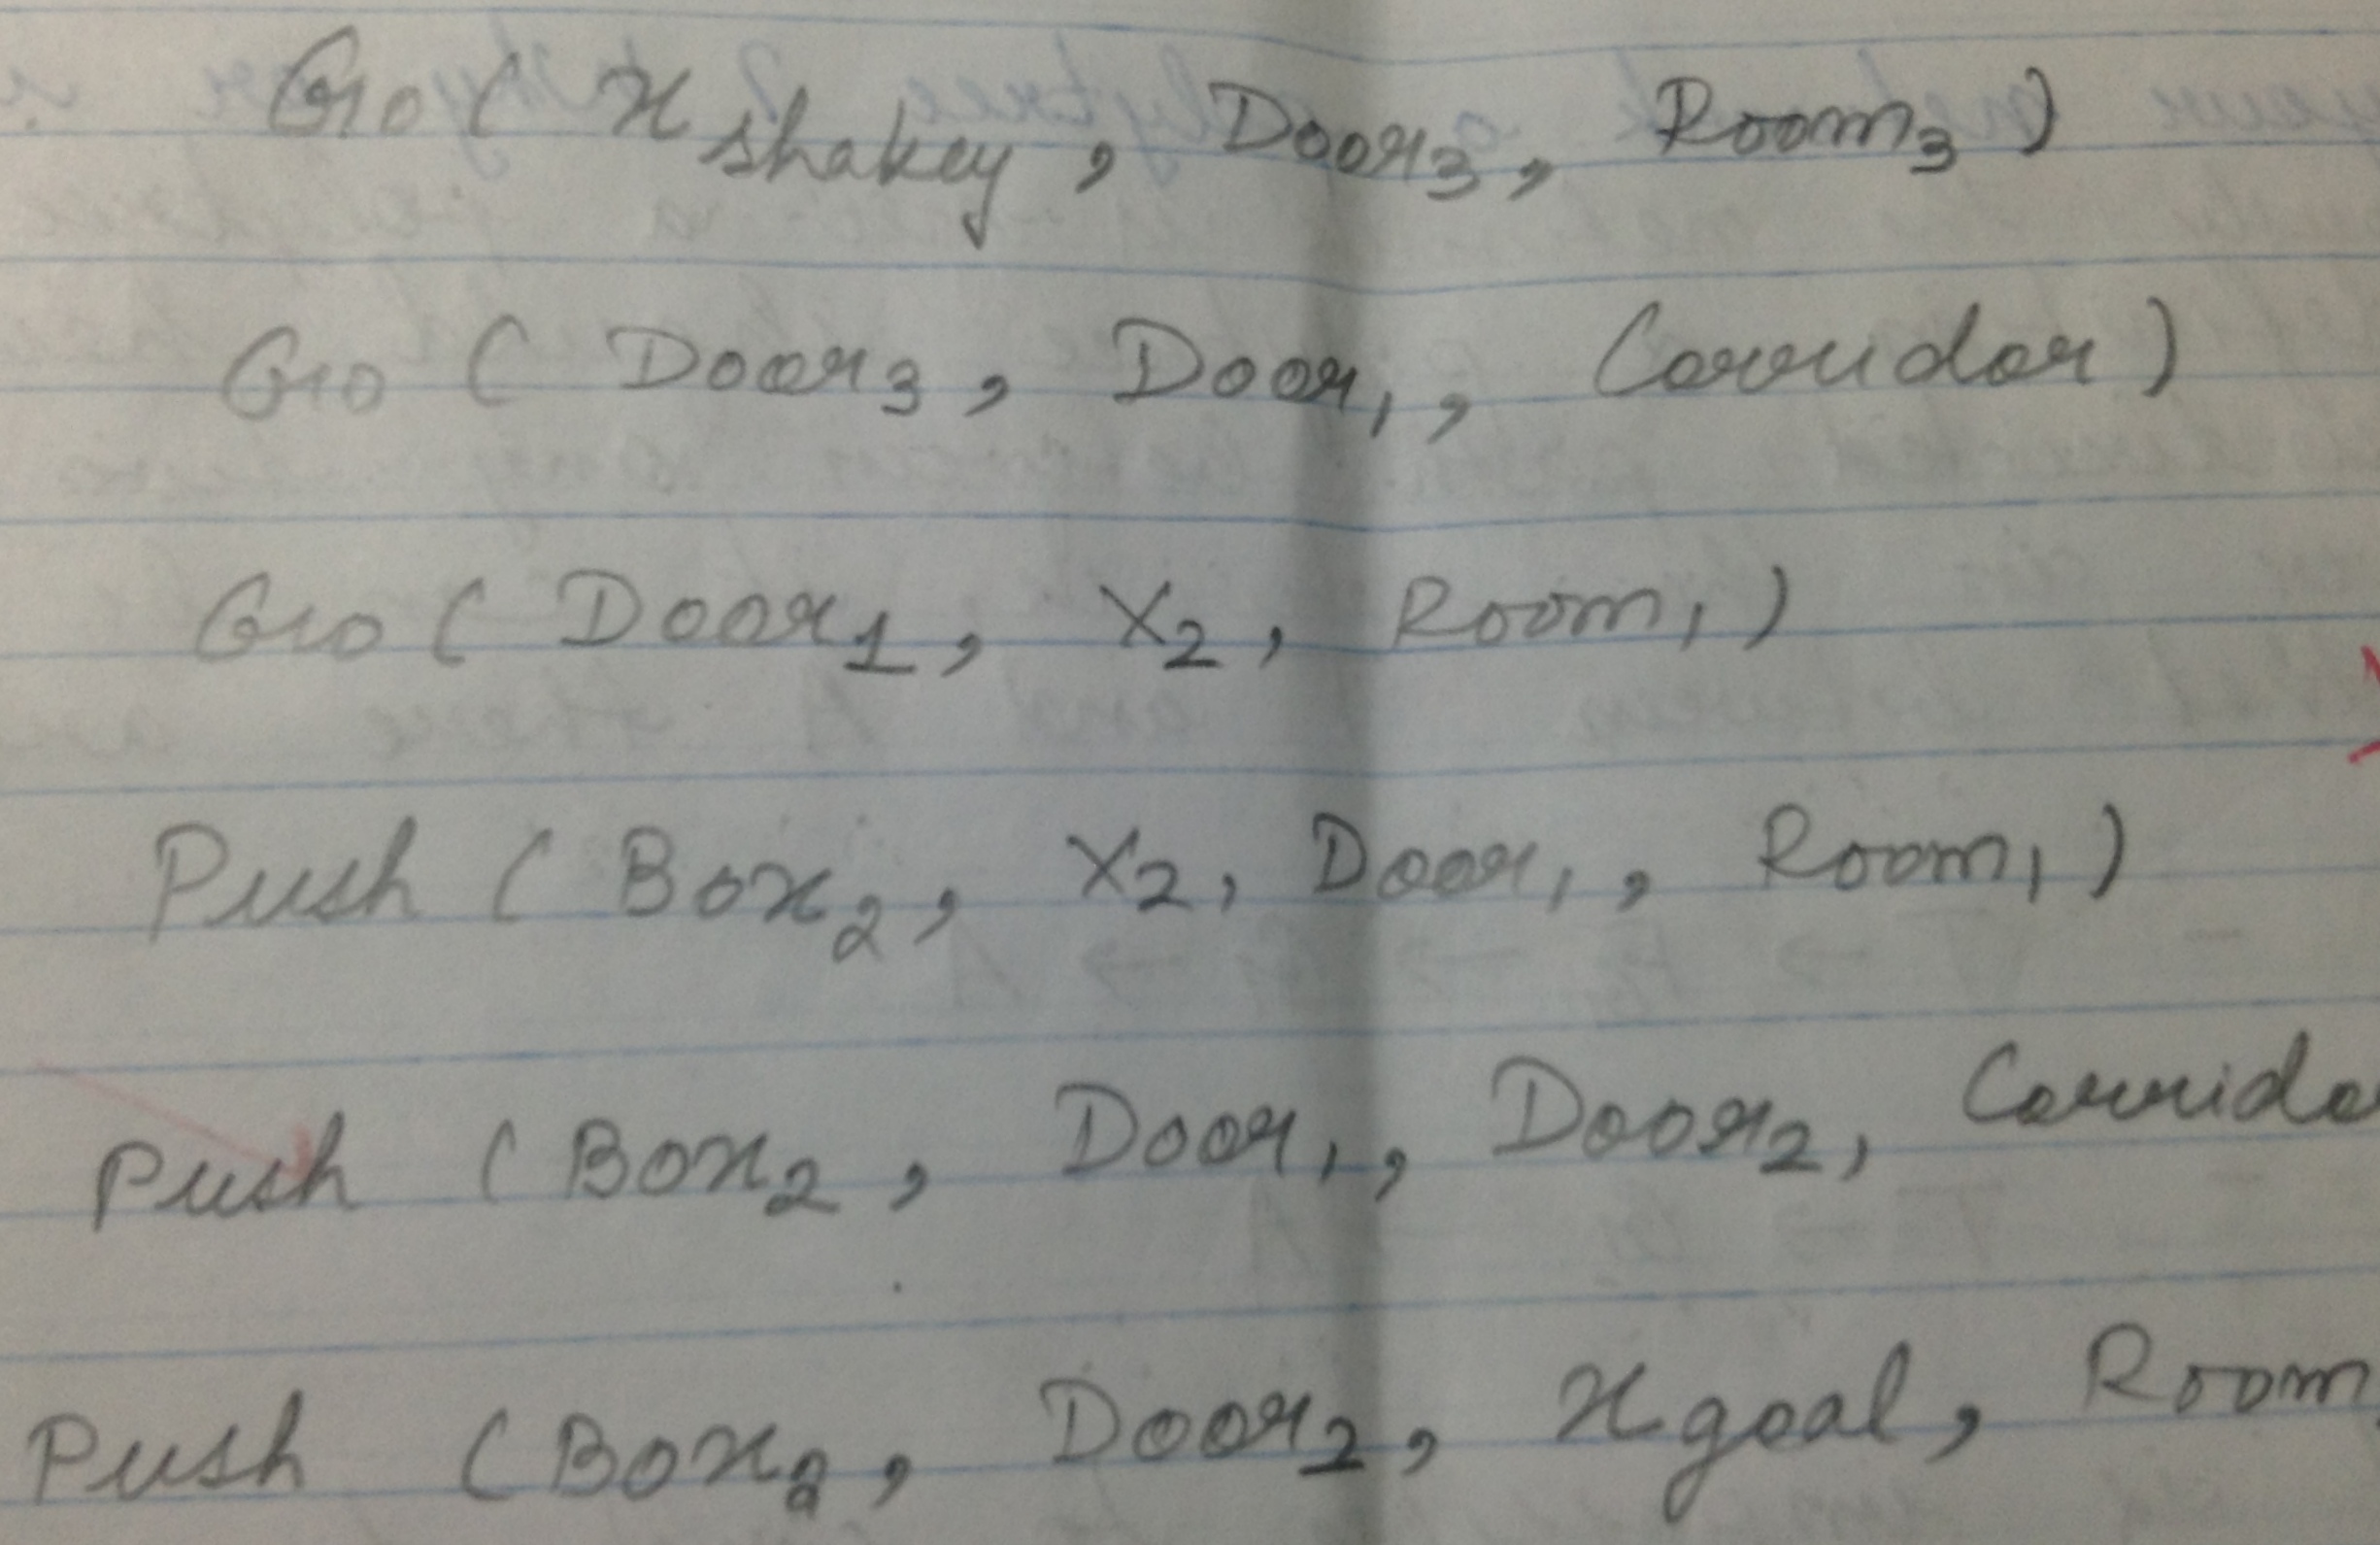 Go ( x shakey , Door3 , Room3 )
Go ( Door3 , Door1 , Corridor )
Go ( Door1 , X2 , Room1 )
Push ( Box2 , X2 , Door1 , Room1 )
Push ( Box2 , Door1 , Door2 , Corrido
Push ( Box2 , Door2 , x goal , Room